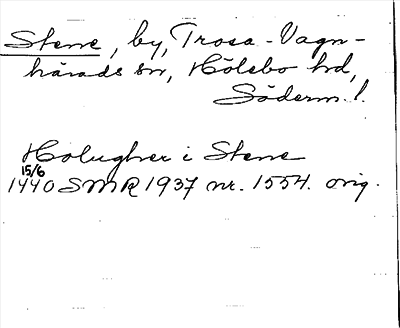 Stene, by, Trosa-Vagn-
härads sn, Hölebo hd,
Söderm. l.
Holmgher i Stene
15/6
1440 SMR 1937 nr. 1554. orig.